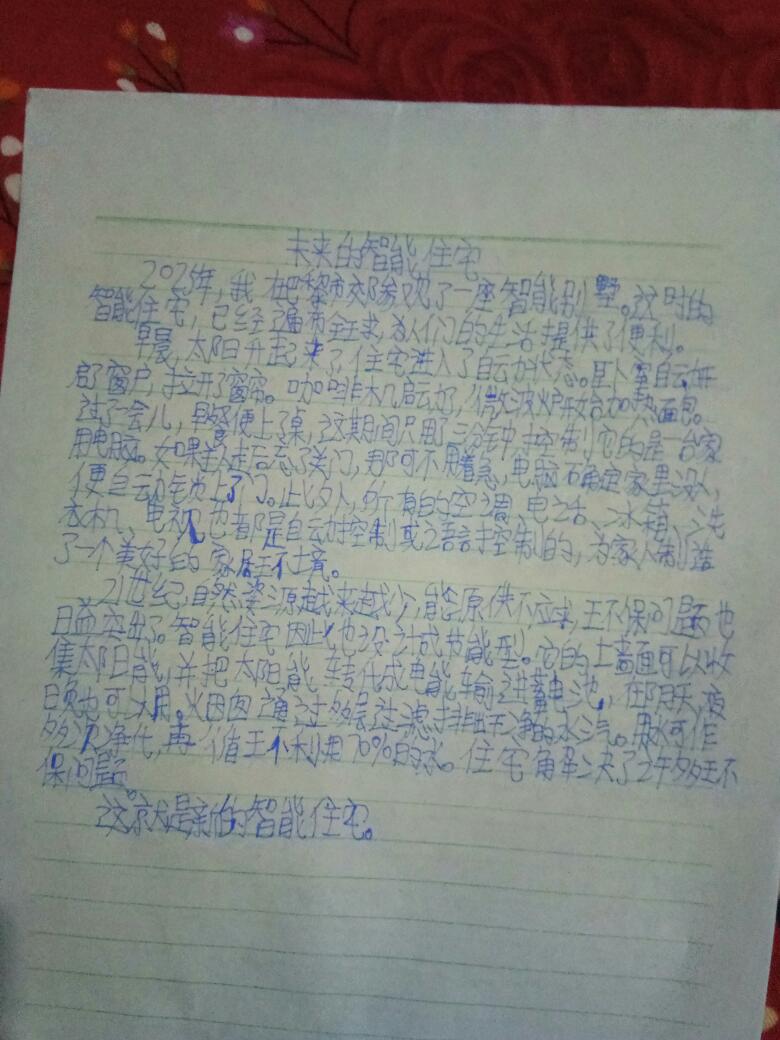 未来的智能住宅
2025年，我在巴黎市郊参观了一座智能别墅。这时的
智能住宅，已经遍布全球，为人们的生活提供了便利。
早晨，太阳升起来了，住宅进入了自动状态。卧室自动开
启了窗户，拉开了窗帘。咖啡机启动，微波炉开始加热面包。
过了一会儿，早餐便上了桌，这期间只用了三分钟，控制它的是一台家
用电脑。如果主人走后忘了关门，那可不用着急，电脑确定家里没人，
便自动锁上了门。此外，所有的空调、电话、冰箱、洗
衣机、电视也都是自动控制或语言控制的，为家人制造
了一个美好的家居环境。
21世纪，自然资源越来越少，能源供不应求，环保问题也
日益突出了。智能住宅因此也设计成节能型。它的墙面可以收
集太阳能，并把太阳能转化成电能输进蓄电池，在阴天，夜
晚也可以用。烟囱通过多层过滤，排出干净的水汽。用水可作
多次净化，再循环利用70%的水。住宅解决了许多环
保问题。
这就是新的智能住宅。